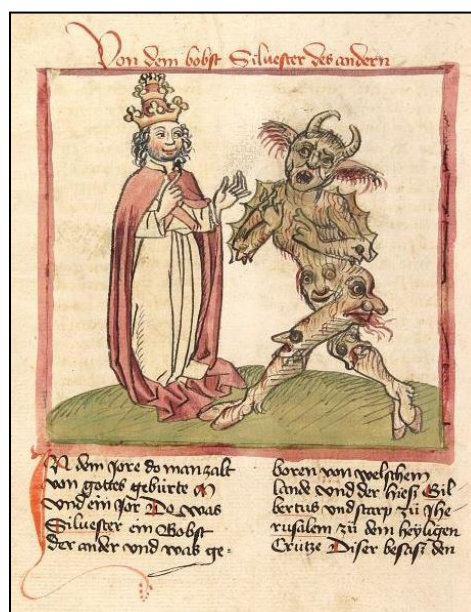 Von dem bobst Siluester des andern
IN dem jore do man zalt
von gottes gebürte M
vnd ein jor Do was
Siluester ein Bobst
der ander vnd waß ge-
boren von welschem
lande vnd der hieß Gil
bertus vnd starp zü Jhe
rusalem zü dem heyligen
Crütze Diser besaß den